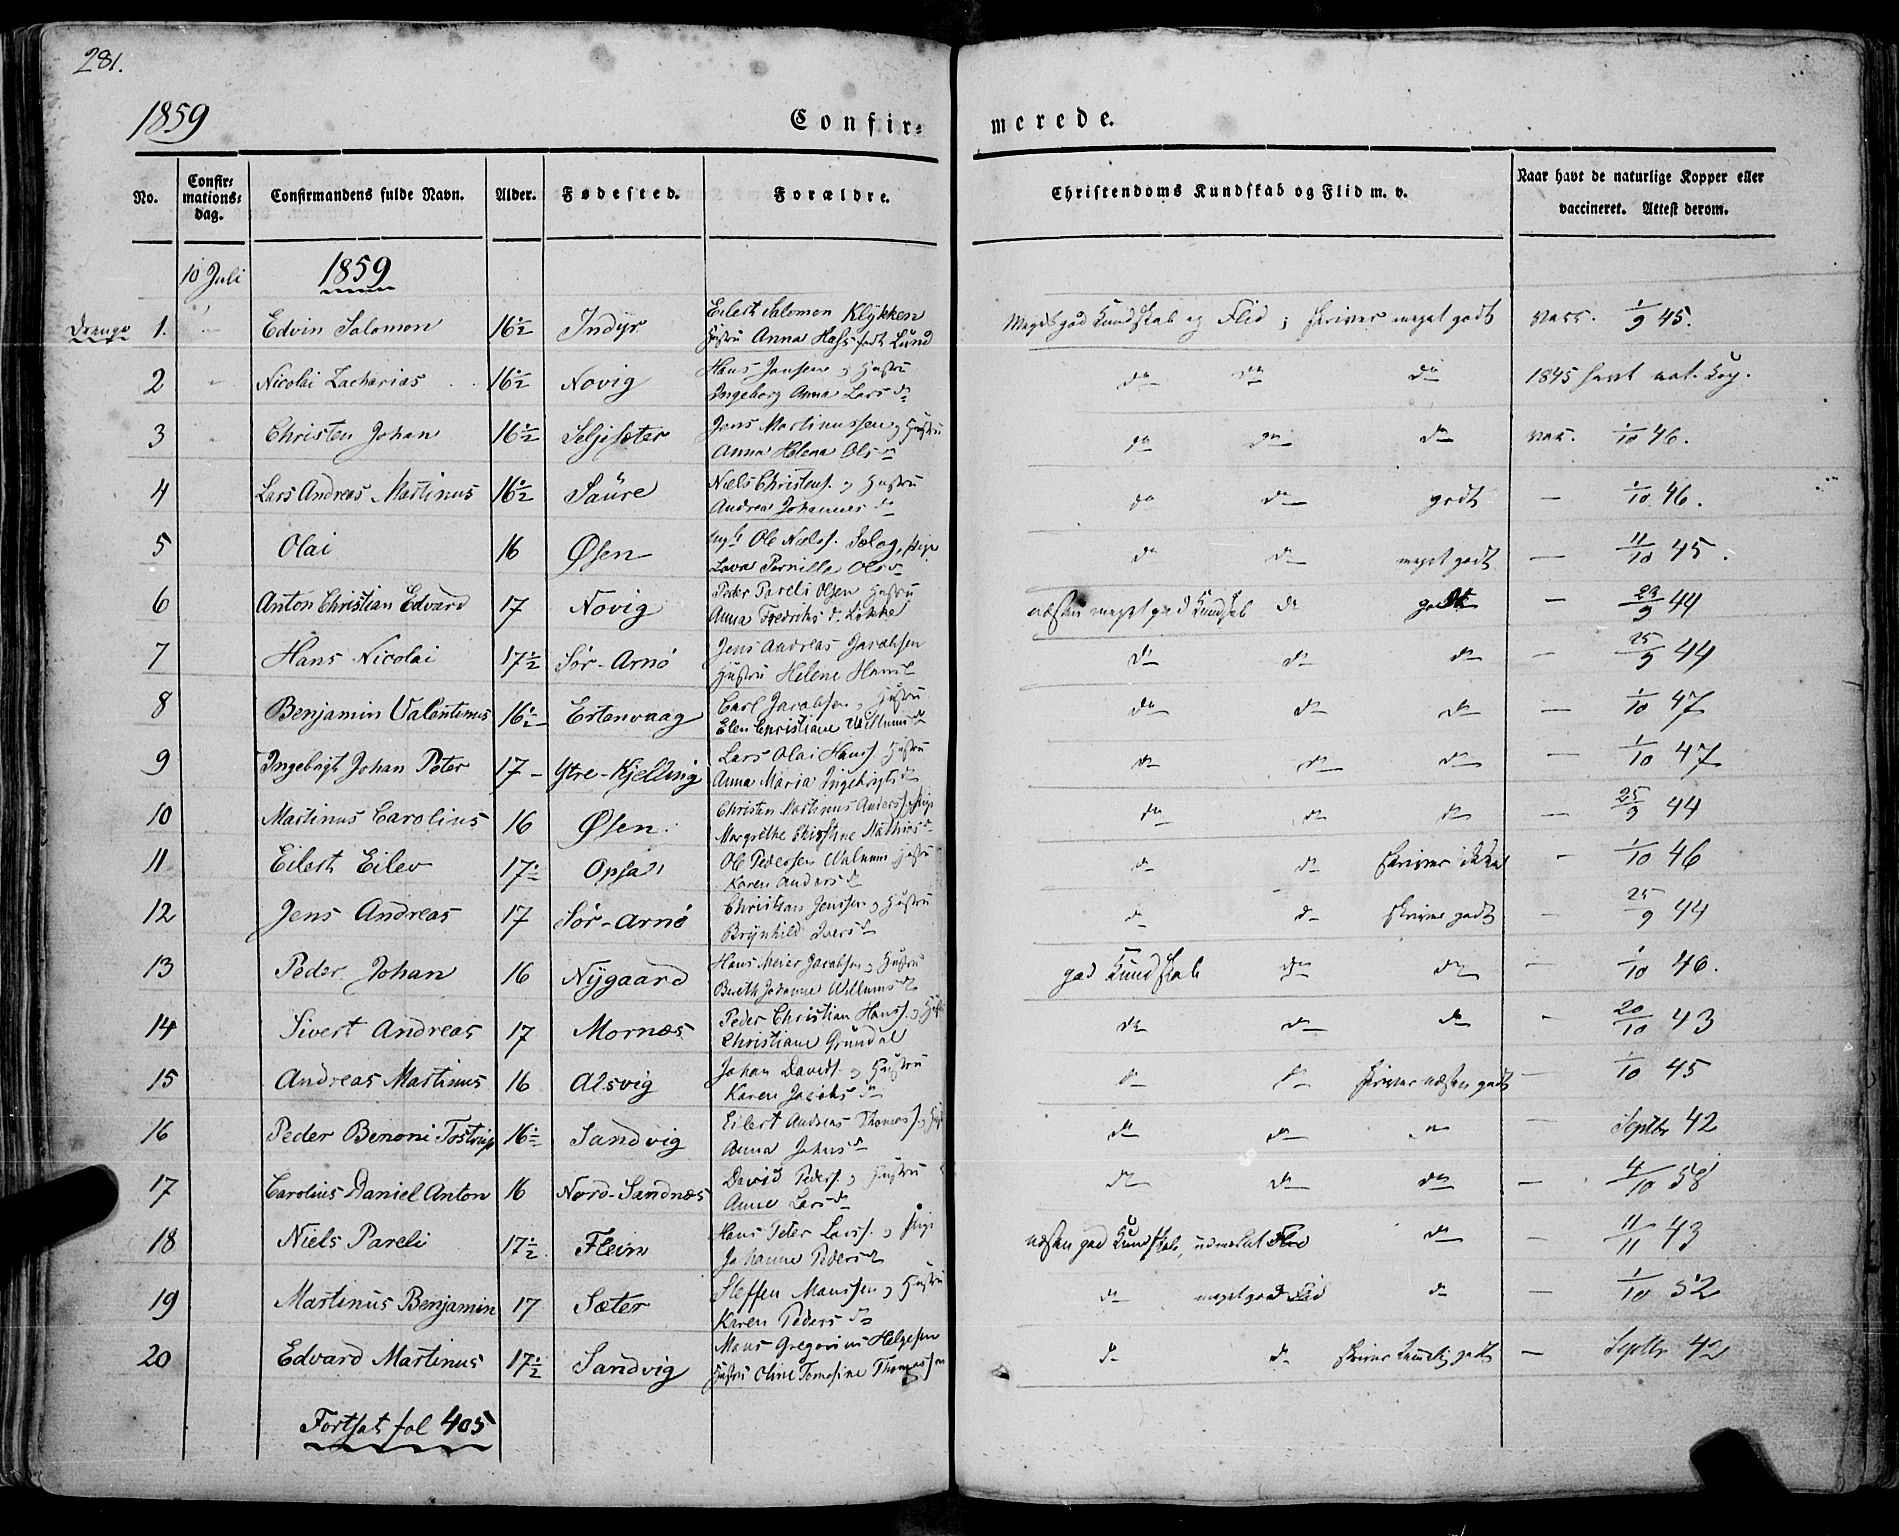 281.
1859
Confir-
merede.
No.
Confir-
mations-
dag.
Confirmandens fulde Navn.
Alder.
Fødested.
Forældre.
Christendoms Kundskab og Flid m. v.
Naar havt de naturlige Kopper eller
vaccineret. Attest derom.
10 Juli
1859
Drenge 1. Edvin Salomon 16½ Indyr
Eilert Salomon Klykken
Hustru Anna Hass født Lund
Meget god Kundskab og Flid; skriver meget godt vacc. 1/9 45.
2 Nicolai Zacharias 16½ Novig
Hans Jensen og Hustru
Ingeborg Anna Lars d.
do do do 1845 havt nat. Kop.
3 Christen Johan 16½ Seljesæter
Jens Martinussen og Hustru
Anna Helena Ols d.
do do do vac. 1/10 46.
4 Lars Andreas Martinus 16½ Saure
Niels Christens. og Hustru
Andrea Johannes d.
do do godt — 1/10 46.
5 Olai 16 Øsen
Ungk. Ole Niels s. Selog, pige
Lova Pernille Ols d.
do do meget godt — 11/10 45.
6 Anton Christian Edvard 17 Novig
Peder Pareli Olsen Hustru
Anna Fredriks d. Løkke
næsten meget god Kundskab do godt — 23/9 44
7 Hans Nicolai 17½ Sør-Arnø
Jens Andreas Jacobsen
Hustru Helene Hans d.
do do do — 25/9 44
8 Benjamin Valentinus 16½ Ertenvaag
Carl Jacobsen og Hustru
Elen Christiane Willums d.
do do do — 1/10 47
9 Ingebrigt Johan Peter 17 — Ytre-Kjelling
Lars Olai Hanss. Hustru
Anna Maria Ingebrigts d.
do do do — 1/10 47
10 Martinus Carolius 16 Øsen.
Christen Martinus Anderss. og pige
Margrethe Christine Mathias d.
do do do — 25/9 44
11 Eilert Eilev 17½ Opsal
Ole Pedersen Valnum Hustru
Karen Anders d.
do do skriver ikke — 1/10 46
12 Jens Andreas 17 Sør-Arnø
Christian Jenssen og Hustru
Brynhild Ivers d.
do do skriver godt — 25/9 44
13 Peder Johan 16 Nygaard
Hans Meier Jacobsen og Hustru
Bereth Johanne Willums d.
god Kundskab do do — 1/10 46.
14 Sivert Andreas 17 Mornæs
Peder Christian Hanss. og Hustru
Christiane Grundal
do do do — 20/10 43
15 Andreas Martinus 16 Alsvig
Johan Davids. og Hustru
Karen Jacobs d.
do do skriver næsten godt — 1/10 45
16 Peder Benoni Tostrup 16½ Sandvig
Eilert Andreas Thomas s. og Hustru
Anna Johns d.
do do do — Septbr 42
17 Carolius Daniel Anton 16 Nord-Sandnæs
David Peders. og Hustru
Anne Lars d.
do do do — 4/10 58
18 Niels Pareli 17½ Flein
Hans Peter Larss. og pige
Johanne Peders d.
næsten god Kundskab, udmærket Flid do — 11/11 43
19 Martinus Benjamin 17 Sæter
Steffen Monssen og Hustru
Karen Peders d.
do meget god Flid do — 1/10 52
20 Edvard Martinus 17½ Sandvig
Mons Gregorius Helgesen
Hustru Oline Tomesine Thomassen
do do skriver temmelig godt — Septbr 42
Fortsat fol 405